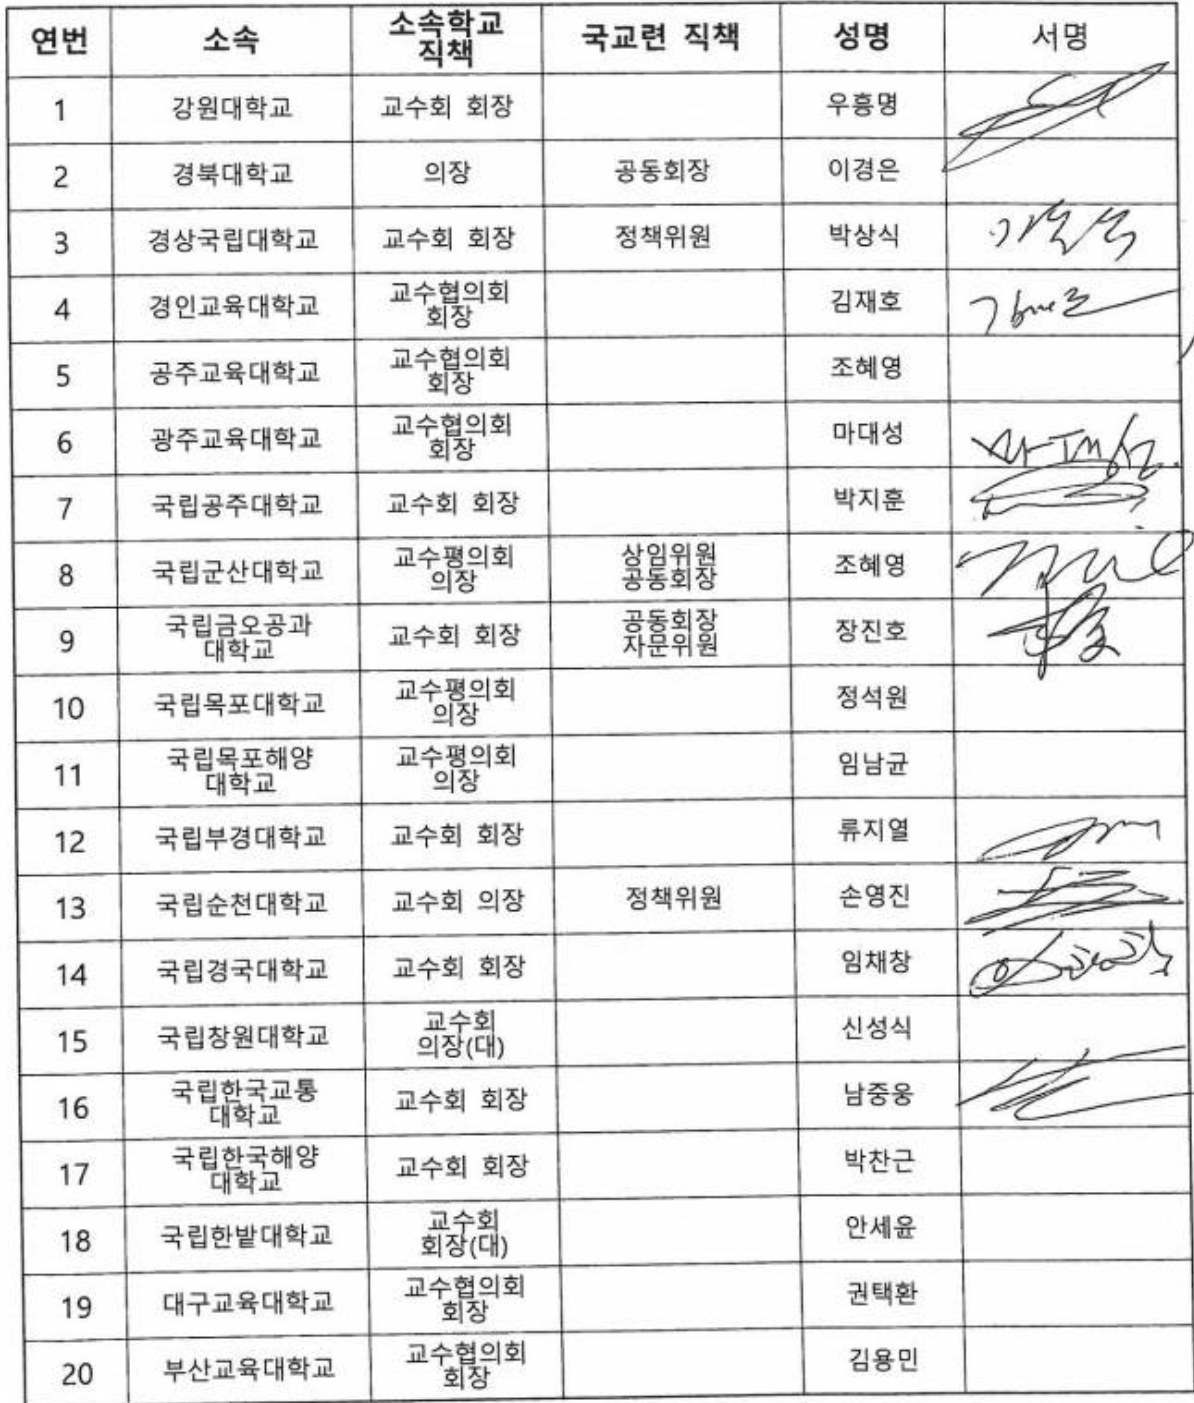 연번 소속 소속학교 직책 국교련 직책 성명 서명
1 강원대학교 교수회 회장 우흥명
2 경북대학교 의장 공동회장 이경은
3 경상국립대학교 교수회 회장 정책위원 박상식
4 경인교육대학교 교수협의회 회장 김재호
5 공주교육대학교 교수협의회 회장 조혜영
6 광주교육대학교 교수협의회 회장 마대성
7 국립공주대학교 교수회 회장 박지훈
8 국립군산대학교 교수평의회 의장 상임위원 공동회장 조혜영
9 국립금오공과 대학교 교수회 회장 공동회장 자문위원 장진호
10 국립목포대학교 교수평의회 의장 정석원
11 국립목포해양 대학교 교수평의회 의장 임남균
12 국립부경대학교 교수회 회장 류지열
13 국립순천대학교 교수회 의장 정책위원 손영진
14 국립경국대학교 교수회 회장 임채창
15 국립창원대학교 교수회 의장(대) 신성식
16 국립한국교통 대학교 교수회 회장 남중웅
17 국립한국해양 대학교 교수회 회장 박찬근
18 국립한밭대학교 교수회 회장(대) 안세윤
19 대구교육대학교 교수협의회 회장 권택환
20 부산교육대학교 교수협의회 회장 김용민